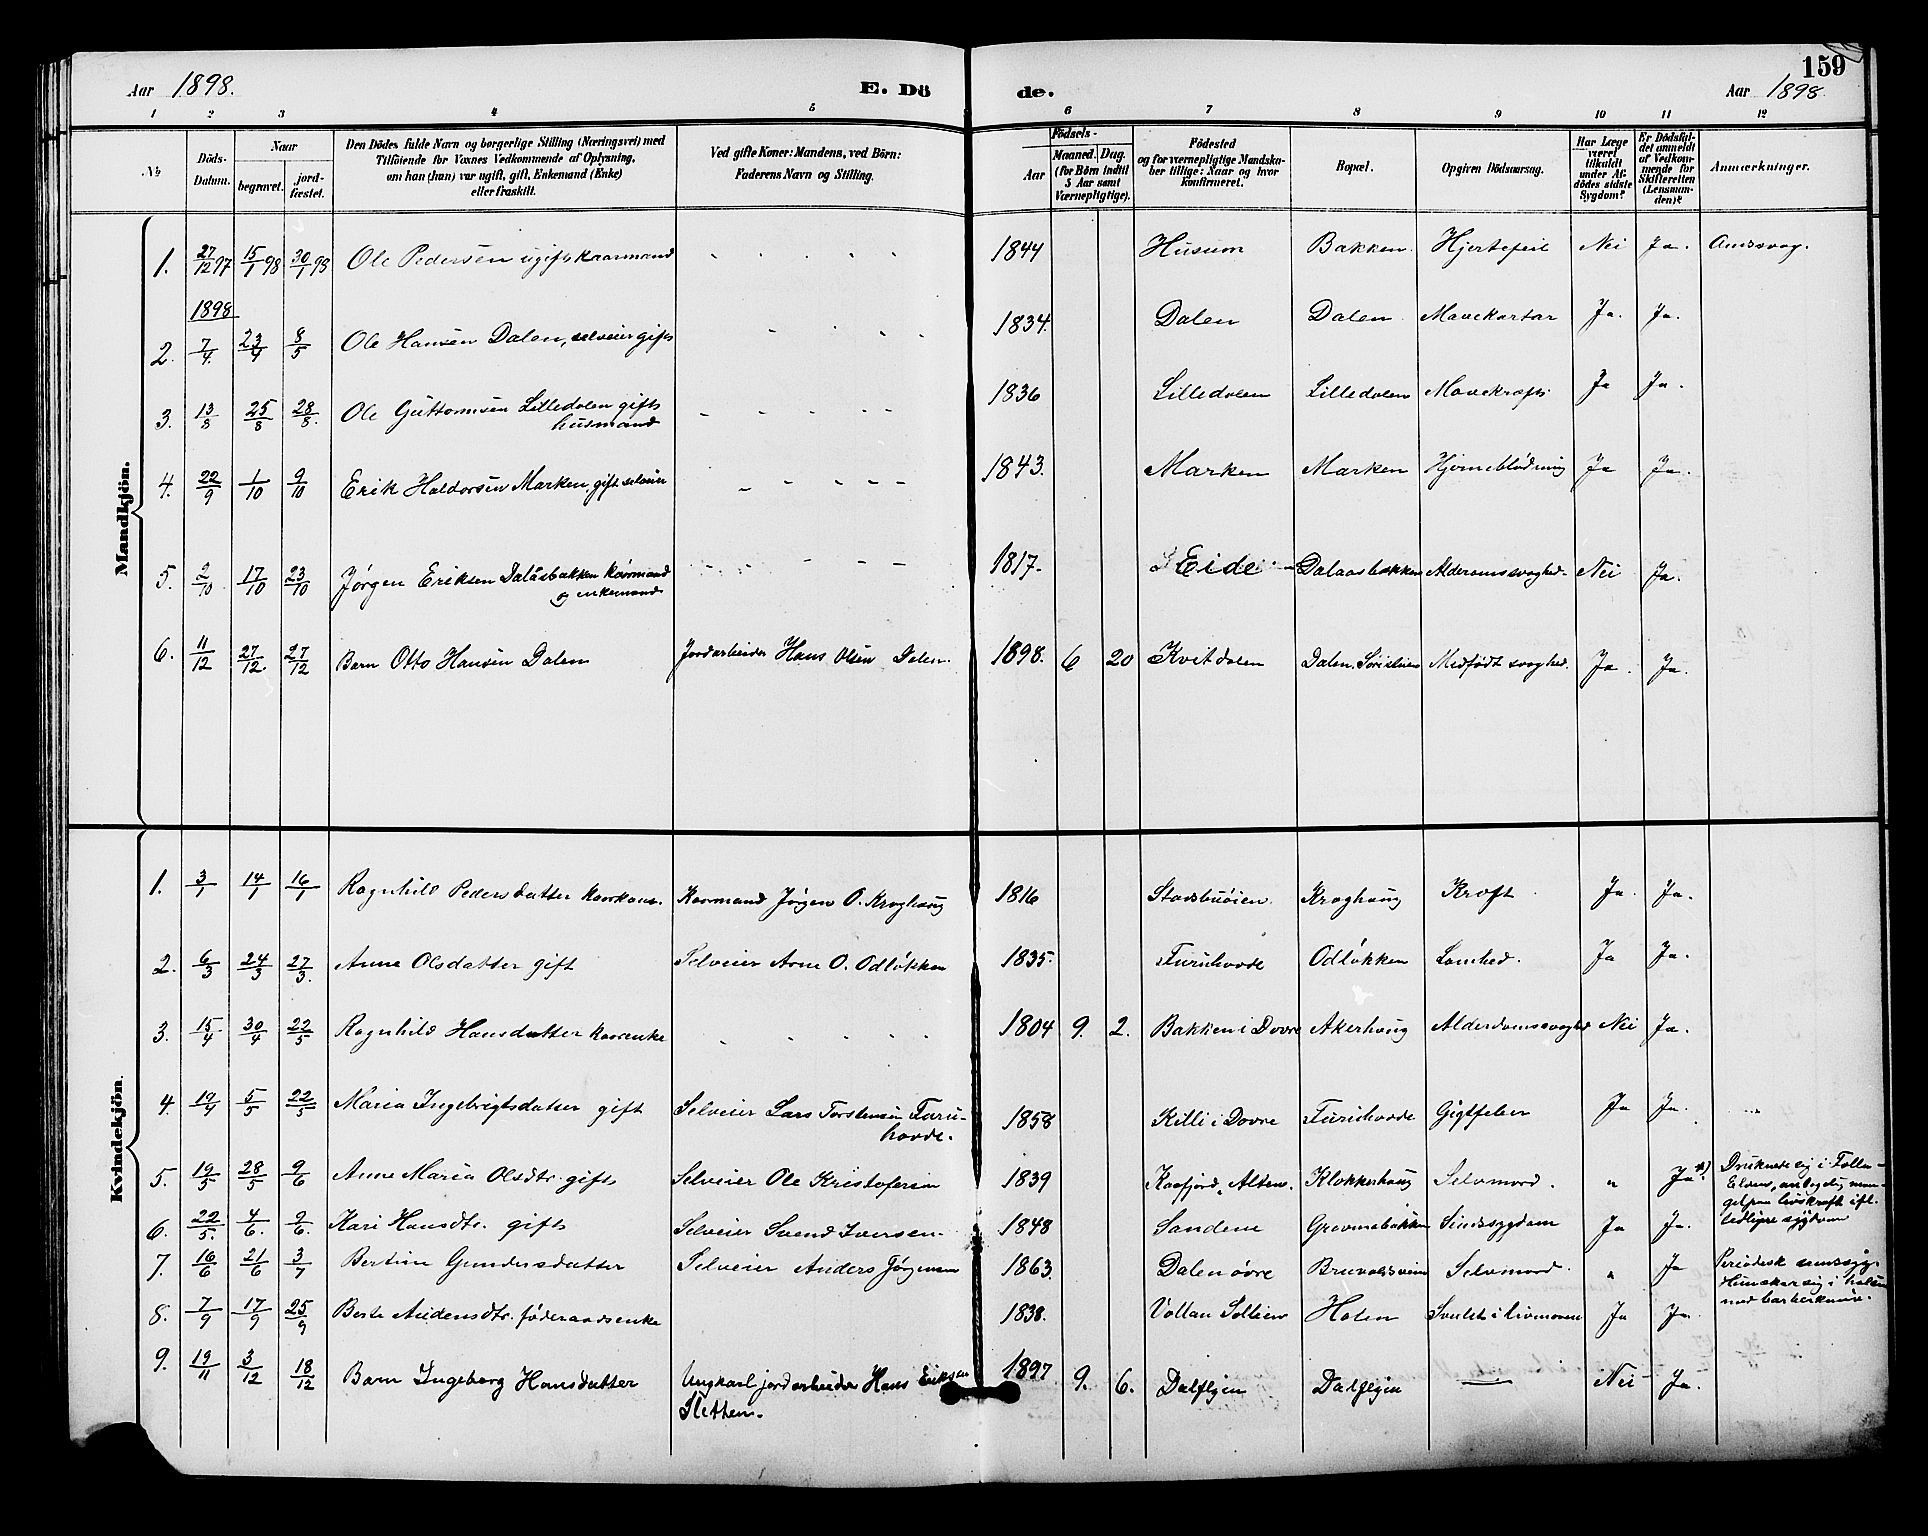 159
Aar 1898. E. Dö de. Aar 1898.
1 2 3 4 5 6 7 8 9 10 11 12
№ Döds-Datum. Naar begravet. jordfæstet. Den Dödes fulde Navn og borgerlige Stilling (Næringsvei) med Tilföiende for Voxnes Vedkommende af Oplysning, om han (hun) var ugift, gift, Enkemand (Enke) eller fraskilt. Ved gifte Koner: Mandens, ved Börn: Faderens Navn og Stilling. Födsels- Aar Maaned. Dag. (for Börn indtil 5 Aar samt Værnepligtige). Födested og for værnepligtige Mandskaber tillige: Naar og hvor konfirmeret. Bopæl. Opgiven Dödsaarsag. Har Læge været tilkaldt under Afdödes sidste Sygdom? Er Dödsfaldet anmeldt af Vedkommende for Skifteretten (Lensmanden)? Anmærkninger.
Mandkjön.
1. 27/12 97 15/1 98 30/1 98 Ole Pedersen ugift kaarmand 1844 Husum Bakken. Hjertefeil Nei Ja. Andssvag.
1898
2. 7/4. 23/4 8/5 Ole Hansen Dalen, selveier gift 1834. Dalen Dalen. Mavekatar Ja. Ja.
3. 13/8 25/8 28/8. Ole Guttormsen Lilledalen gift husmand 1836 Lilledalen Lilledalen Mavekræft. Ja Ja.
4. 22/9 1/10 9/10 Erik Haldorsen Marken, gift selveier 1843. Marken Marken Hjerneblödning Ja Ja.
5. 2/10 17/10 23/10 Jørgen Eriksen Dalåsbakken kaarmand og enkemand 1817. Eide Dalaasbakken Alderdomssvaghed. Nei Ja.
6. 11/12 27/12. 27/12 Barn Otto Hansen Dalen Jordarbeider Hans Olsen Dalen. 1898. 6 20 Kvitdalen Dalen, Medfødt svaghed. Ja. Ja.
Kvindekjön.
1. 3/1 14/1 16/1 Ragnhild Pedersdatter kaarkone. Kaarmand Jørgen O. Kroghaug 1816 Stadsbuöien. Kroghaug Kræft Ja. Ja.
2. 6/3 24/3 27/3. Anne Olsdatter gift Selveier Arne O. Odløkken 1835. Furuhovde Odløkken Lamhed. Ja Ja.
3. 15/4 30/4 22/5 Ragnhild Hansdatter kaarenke 1804 9. 2. Bakken i Dovre Akerhaug Alderdomssvaghed Nei Ja.
4. 19/4 5/5 22/5 Maria Ingebrigtsdatter gift Selveier Lars Torstensen Furuhovde. 1858 Killi i Dovre Furuhovde Gigtfeber Ja Ja.
5. 19/5 28/5 9/6 Anne Maria Olsdtr. gift Selveier Ole Kristofersen 1839 Kaafjord, Alten. Klokkerhaug Selvmord. „ Ja *) Druknede sig i Folla-Elven, antagelig mangel paa livskraft eft. tidligere sygdom
6. 22/5. 4/6. 9/6. Kari Hansdtr. gift Selveier Svend Iversen. 1848 Sandene Grovmobakken Sindssygdom Ja Ja.
7. 16/6 21/6 3/7 Bertine Gundersdatter Selveier Anders Jørgensen 1863. Dalen övre Bruvoldsveien Selvmord. „ Ja Periodesk sindssyg. Hun skar sig i halsen med barberkniv.
8. 7/9 17/9 25/9 Berte Audensdtr. föderaadsenke 1838. Vollan Sollien Holen Svulst i livmoren Ja Ja.
9. 19/11 3/12 18/12 Barn Ingeborg Hansdatter Ungkarl jordarbeider Hans Eriksen Sletten. 1897. 9. 6. Dalflyen Dalflyen — Nei Ja.